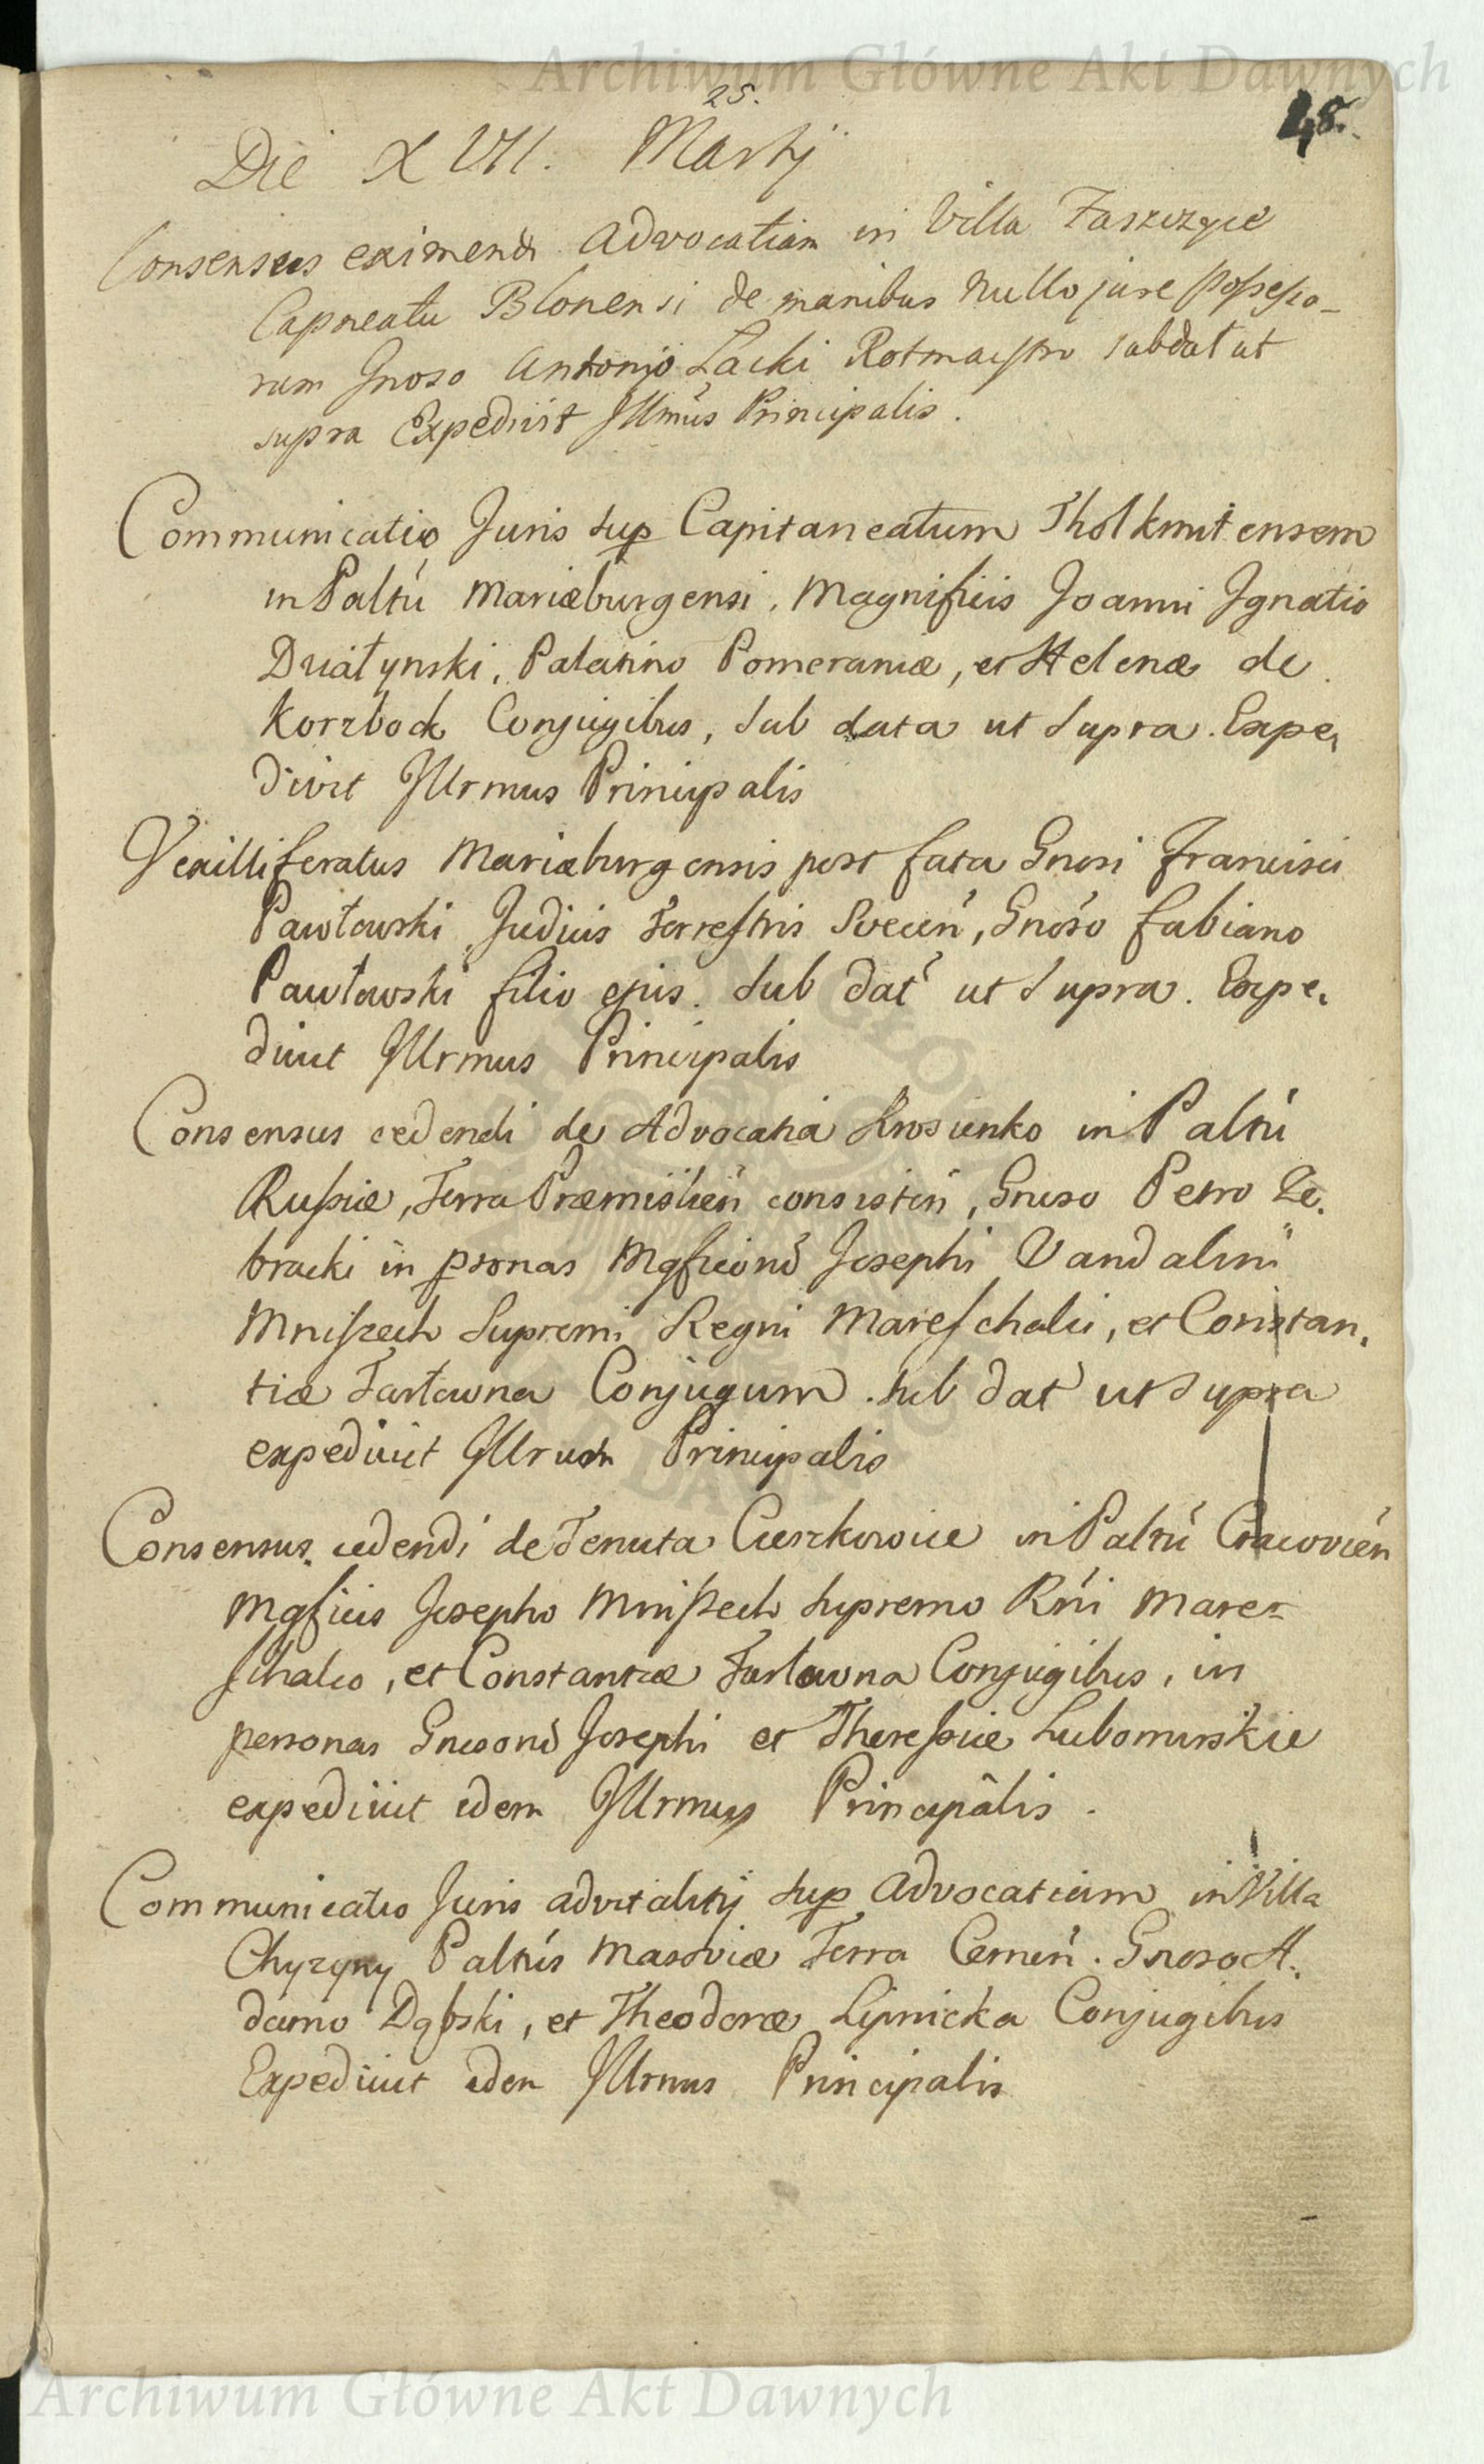 Archiwum Główne Akt Dawnych
25.
28.
Die XVII. Martij
Consensus eximendi Advocatiam in Villa Zaszczyce
Capneatu Blonensi de manibus nullo jure possesso-
rum Gnoso Antonio Łacki Rotmastro sub dat ut
supra Expedivit Illmus Principalis.
Communicatio Juris sup Capitaneatum Tholkmitensem
in Paltu Mariæburgensi, Magnificis Joanni Ignatio
Działynski, Palatino Pomeraniæ, et Helenæ de
Korzbock Conjugibus, sub data ut supra. Expe,
divit Illrmus Principalis
Vexilliferatus Mariæburgensis post fata Gnosi Francisci
Pawłowski Judicis Terrestris Svecen, Gnoso Fabiano
Pawłowski filio ejus. sub dat ut supra. Expe,
divit Illrmus Principalis
Consensus cedendi de Advocatia Krosienko in Paltu
Russiæ, Terra Præmislien consisten, Gnoso Petro Ze,
bracki in psonas Mgficond Josephi Vandalini
Mniszech Supremi Regni Mareschalci, et Constan,
tiæ Tarłowna Conjugum. sub dat ut supra
expedivit Illrus Principalis
Consensus cedendi de Tenuta Cieszkowice in Paltu Cracovien
Mgficis Josepho Mniszech Supremo Rni Mare-
schalco, et Constantiæ Tarłowna Conjugibus, in
personas Gnosond Josephi et Theressiæ Lubomirskie
expedivit idem Illrmus Principalis.
Communicatio Juris advitalitij sup Advocatiam in Villa
Chyzyny Paltus Masoviæ Terra Cernen. Gnoso A,
damo Dąbski, et Theodoræ Lipnicka Conjugibus
Expedivit idem Illrmus Principalis
Archiwum Główne Akt Dawnych